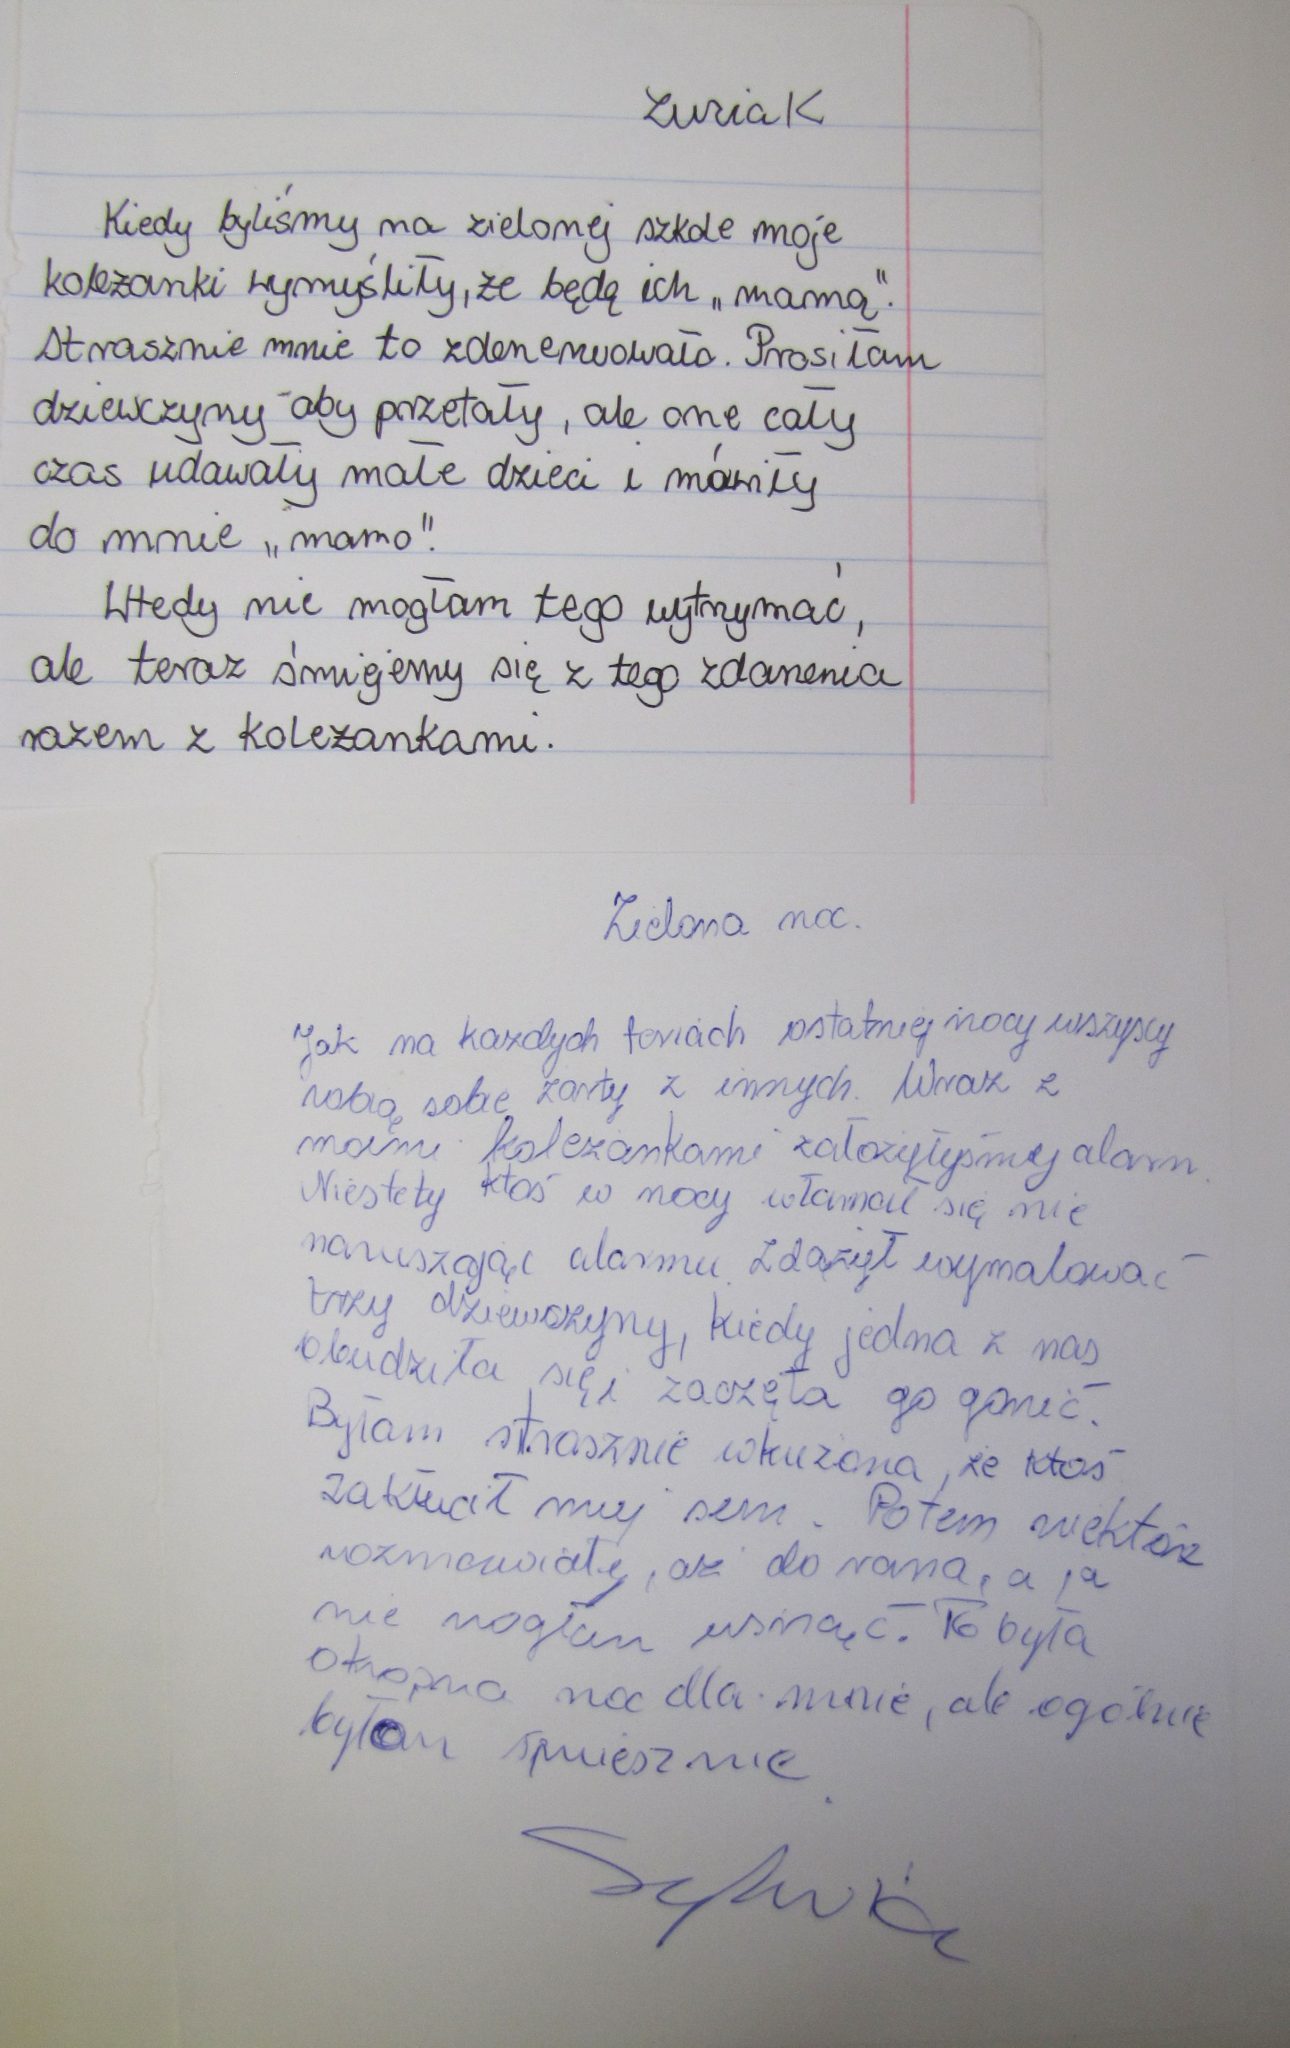 Zuzia K
Kiedy byliśmy na zielonej szkole moje
koleżanki wymyśliły, że będę ich „mamą".
Strasznie mnie to zdenerwowało. Prosiłam
dziewczyny aby przetały, ale one cały
czas udawały małe dzieci i mówiły
do mnie „mamo".
Wtedy nie mogłam tego wytrzymać,
ale teraz śmiejemy się z tego zdarzenia
razem z koleżankami.
Zielona noc.
Jak na każdych feriach ostatniej nocy wszyscy
robią sobie żarty z innych. Wraz z
moimi koleżankami założyłyśmy alarm.
Niestety ktoś w nocy włamał się nie
naruszając alarmu. Zdążył wymalować
trzy dziewczyny, kiedy jedna z nas
obudziła się i zaczęła go gonić.
Byłam strasznie wkurzona, że ktoś
zakłucił muj sen. Potem niektóre
rozmawiały, aż do rana, a ja
nie mogłam usnąć. To była
okropna noc dla mnie, ale ogólnie
było śmiesznie.
Sylwia